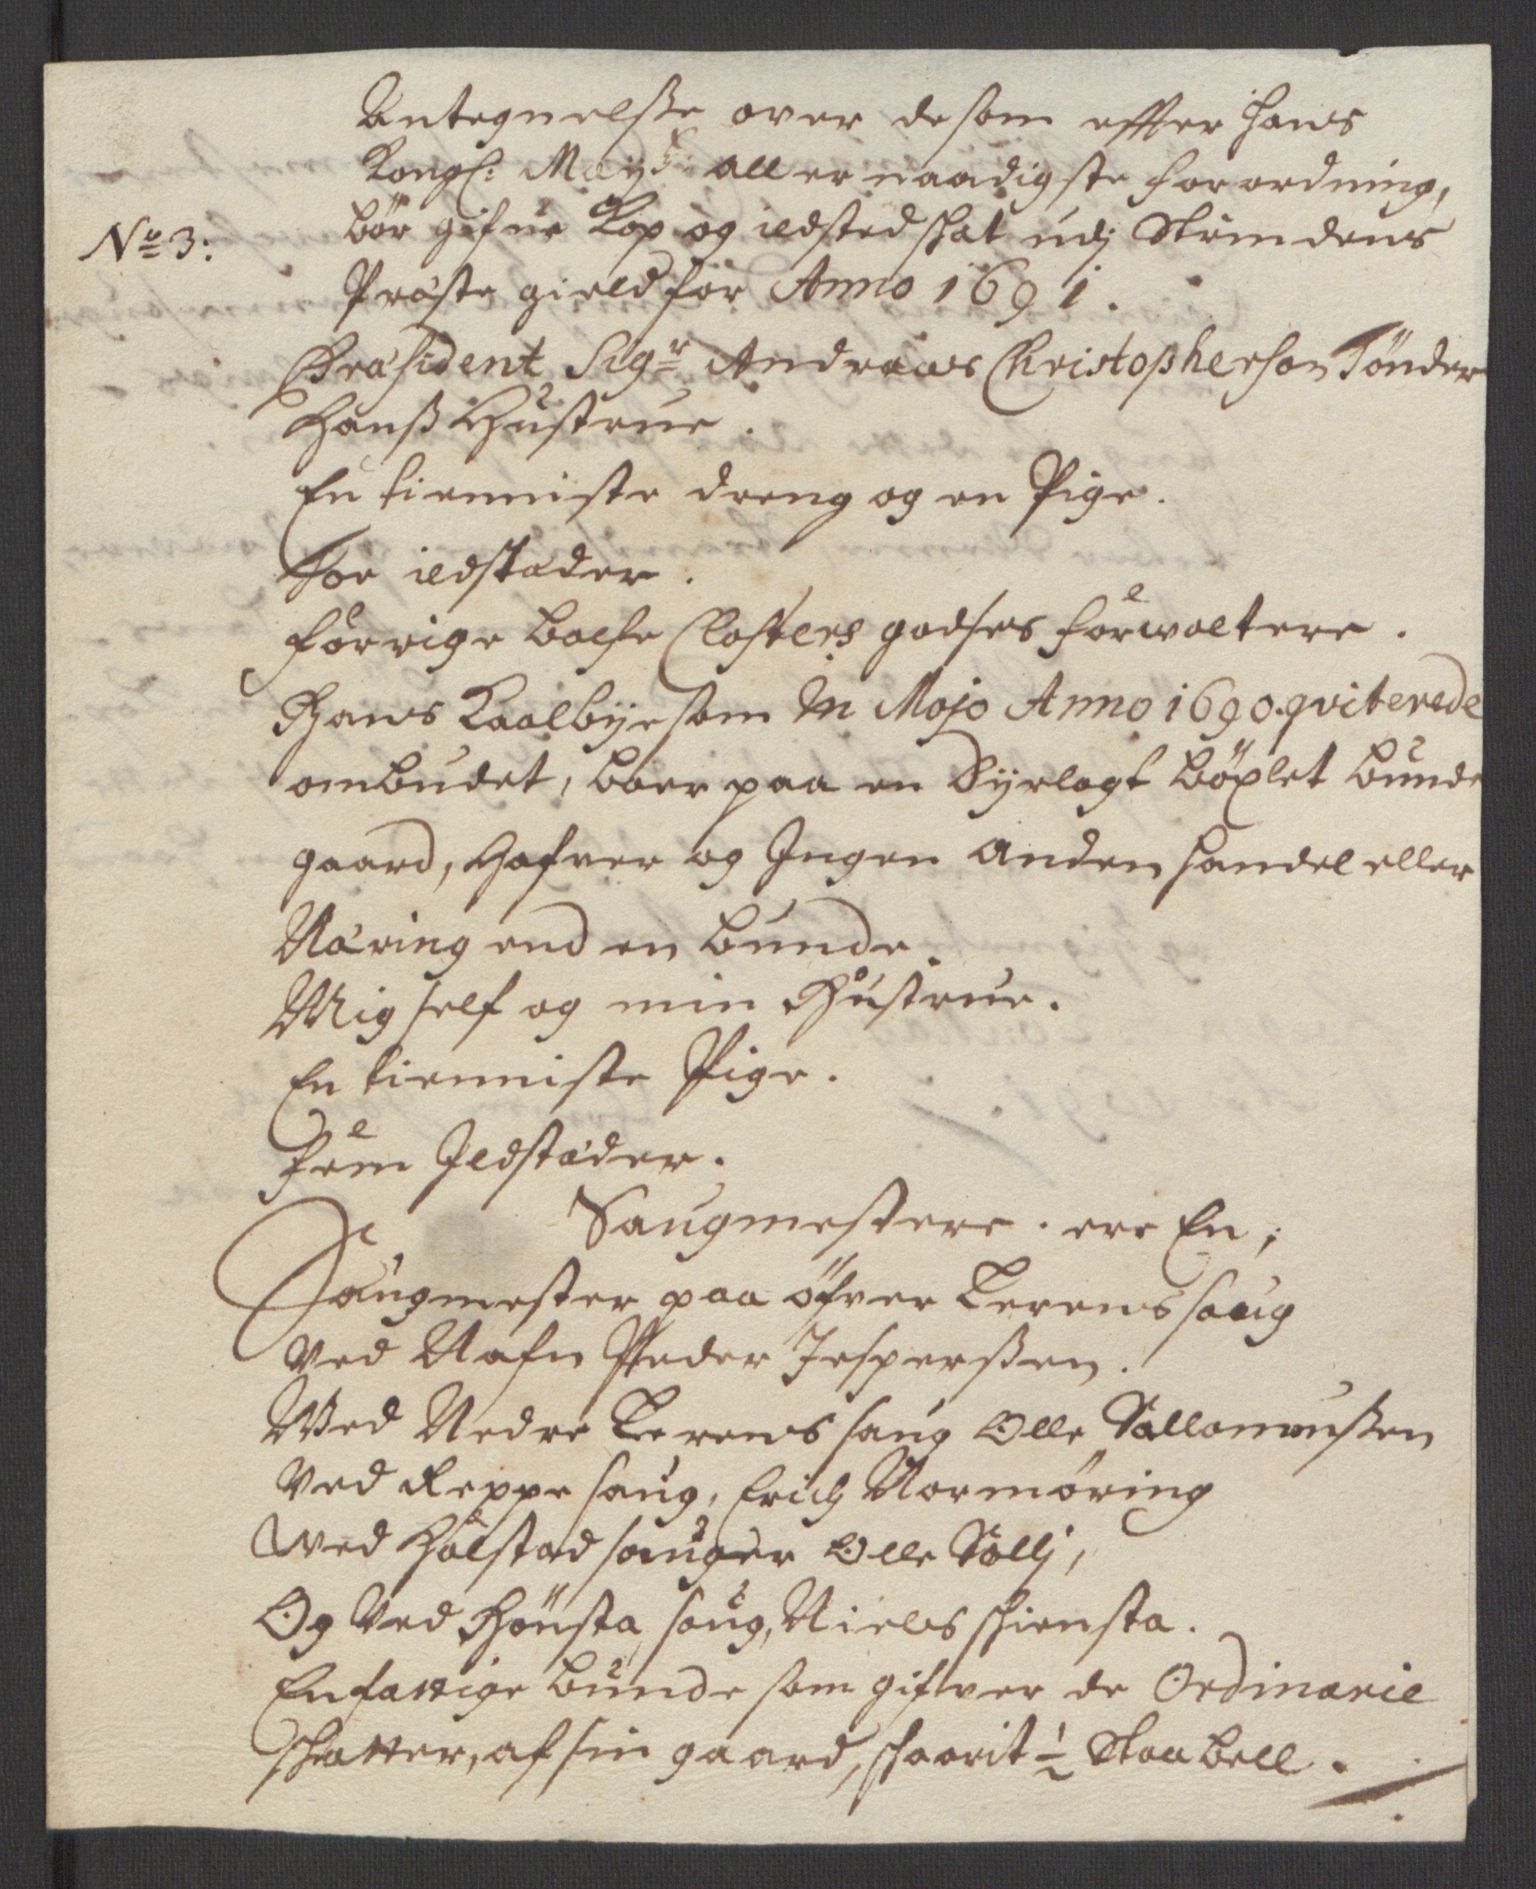 Antegnelsse over de som effter Hans
Kongl: Mayts: aller naadigste forordning,
No 3:
bør gifue Kop og ildsted shat udj Strindens
Præste gield for Anno 1691.
Præsident Sigr Andreas Christopherson Tønder
Hanss Hustrue.
En tienniste dreng og en Pige.
Toe ildstæder.
Forrige Closters godses forwaltere.
Hans Kaalbye som in Majo Anno 1690. qviterede
ombudet, boer paa en bøxlet bunde
gaard, Hafver og Ingen anden handel eller
Næring end en bunde.
Mig self og min Hustrue.
En tienniste Pige.
Fem Ildstæder.
Saugmestere. ere En,
Saugmester paa öfver Lerens saug
ved Nafn Peder Jesperssen.
Ved Nedre Lerens saug Olle Sallamonssen
Ved Reppe saug, Erich Normøring
Wed Halstad sauger Olle Sollj,
Og Ved Hönsta saug, Niels shiensta.
En fattige bunde som gifver de Ordinarie
shatter, af sin gaard, shaarit 1 Staabell.